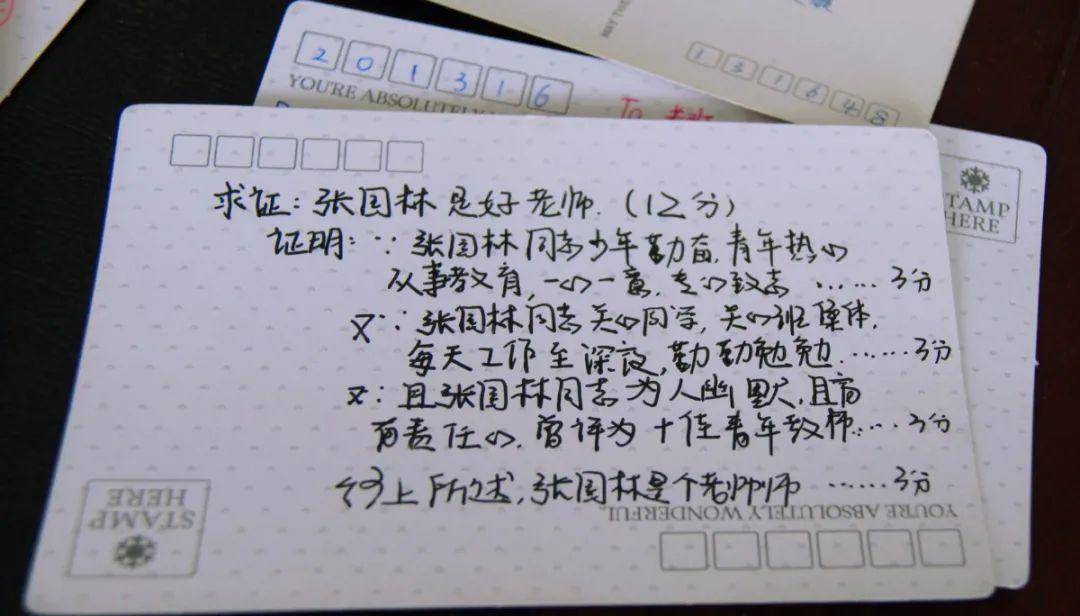 MAY THE
131648
201316
YOU'RE ABSOLUTELY
To
STAMP
HERE
求证：张国林是好老师.（12分）
证明：∵张国林同志少年勤奋,青年热心
从事教育,一心一意,专心致志 ……3分
又∵张国林同志关心同学,关心班集体,
每天工作至深夜,勤勤勉勉……3分
又∵且张国林同志为人幽默,且富
有责任心,曾评为十佳青年教师……3分
综上所述,张国林是个老师师 ……3分
YOU'RE ABSOLUTELY WONDERFUL.
STAMP
HERE